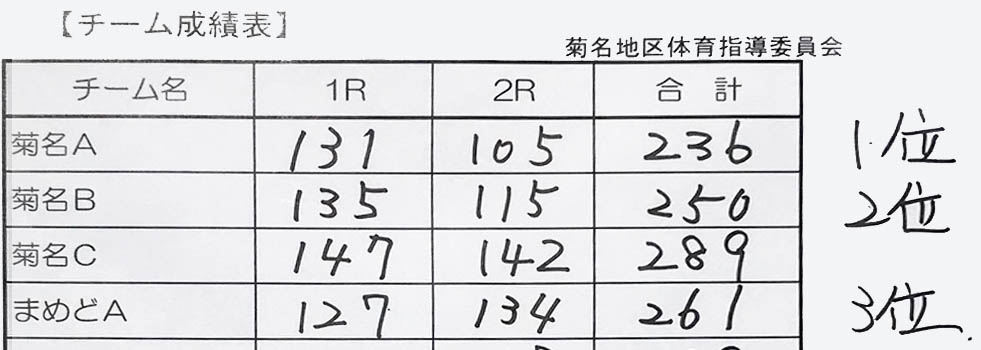 【チーム成績表】
菊名地区体育指導委員会
チーム名 1R 2R 合計
菊名A 131 105 236 1位
菊名B 135 115 250 2位
菊名C 147 142 289
まめどA 127 134 261 3位